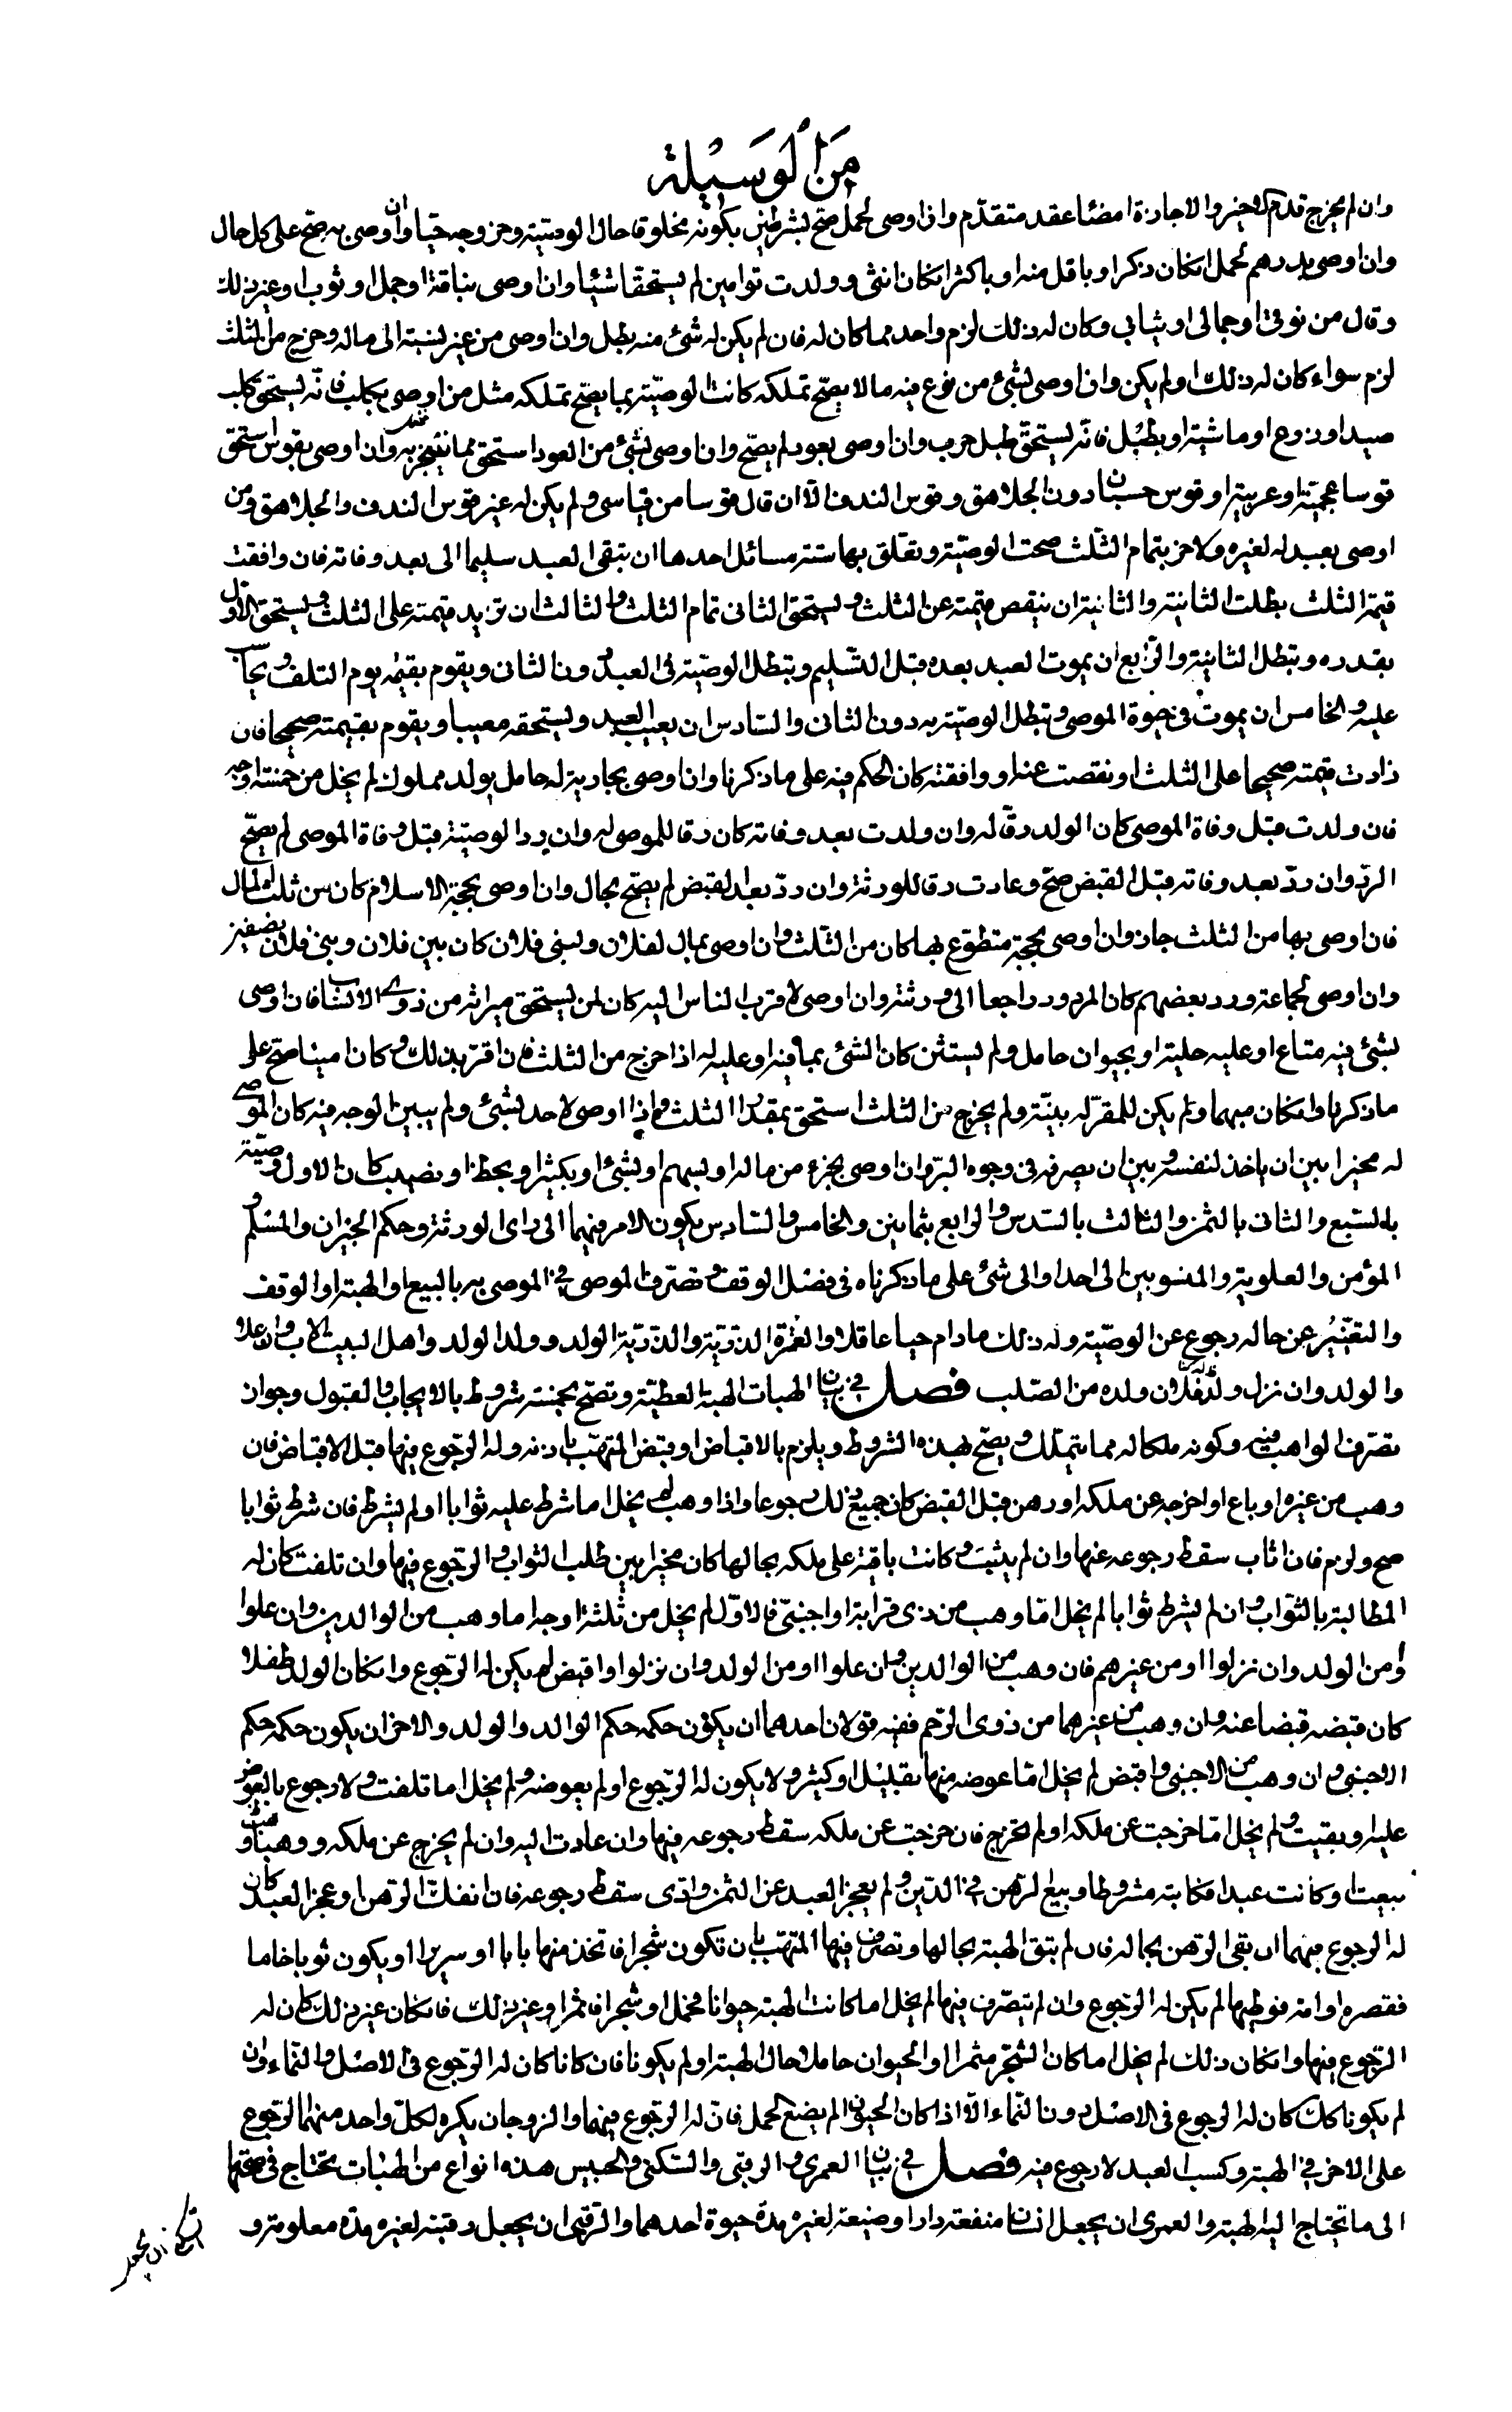 من الوسيلة
وان لم يخرج قدم الاخير والاجازة امضاء عقد متقدم واذا اوصى لحمل صح بشرطين بكونه مخلوقا حال الوصية وخروجه حيا وان اوصى به صح على كل حال
وان اوصى بدرهم لحمل ان كان ذكرا وباقل منه او باكثر ان كان انثى وولدت توامين لم يستحقا شيئا وان اوصى بناقة او جمل او ثوب او غير ذلك
وقال من نوقى او جمالى او ثيابى وكان له ذلك لزم واحد مما كان له فان لم يكن له شئ منه بطل وان اوصى من غير نسبة الى ماله وخرج من الثلث
لزم سواء كان له ذلك او لم يكن وان اوصى بشئ من نوع فيه ما لا يصح تملكه كانت الوصية بما يصح تملكه مثل من اوصى بكلب فانه يستحق كلب
صيد او زرع او ماشية او بطبل فانه يستحق طبل حرب وان اوصى بعود لم يصح وان اوصى بشئ من العود استحق مما يتبخر به وان اوصى بقوس استحق
قوسا عجمية او عربية او قوس حسبان دون الجلاهق وقوس الندف الا ان قال قوسا من قياسى ولم يكن له غير قوس الندف والجلاهق ومن
اوصى بعبد له لغيره ولاخر بتمام الثلث صحت الوصية وتعلق بها ستة مسائل احدها ان تبقى العبد سليما الى بعد وفاته فان وافقت
قيمة الثلث بطلت الثانية والثانية ان ينقص قيمته عن الثلث ويستحق الثانى تمام الثلث والثالث ان تزيد قيمته على الثلث ويستحق الاول
بقدره وتبطل الثانية والرابع ان يموت العبد بعده قبل التسليم وتبطل الوصية فى العبد دون الثانى ويقوم بقيمة يوم التلف ويحاسب
عليه والخامس ان يموت فى حيوة الموصى وتبطل الوصية به دون الثانى والسادس ان يعيب العبد ويستحقه معيبا ويقوم بقيمته صحيحا فان
زادت قيمته صحيحا على الثلث او نقصت عنه او وافقته كان الحكم فيه على ما ذكرنا وان اوصى بجارية له حامل بولد مملوك لم يخل من خمسة اوجه
فان ولدت قبل وفاة الموصى كان الولد رقا له وان ولدت بعد وفاته كان رقا للموصى له وان رد الوصية قبل وفاة الموصى لم يصح
الرد وان رد بعد وفاته قبل القبض صح وعادت رقا للورثة وان رد بعد القبض لم يصح بحال وان اوصى بحجة الاسلام كان من ثلث المال
فان اوصى بها من الثلث جاز وان اوصى بحجة متطوع بها كان من الثلث وان اوصى بمال لفلان ولبنى فلان كان بين فلان وبنى فلان نصفين
وان اوصى لجماعة ورد بعضهم كان المردود راجعا الى ورثته وان اوصى لاقرب الناس اليه كان لمن يستحق ميراثه من ذوى الانساب فان اوصى
بشئ فيه متاع او عليه حلية او بحيوان حامل ولم يستثن كان الشئ بما فيه او عليه له اذا خرج من الثلث فان اقر بذلك وكان امينا صح على
ما ذكرنا وان كان متهما ولم يكن للمقر له بينة ولم يخرج من الثلث استحق بمقدار الثلث واذا اوصى لاحد بشئ ولم يبين الوجه فيه كان الموصى
له مخيرا بين ان ياخذ لنفسه وبين ان يصرفه فى وجوه البر وان اوصى بجزء من ماله او بسهم او بشئ او بكثير او بحظ او نصيب كان الاول وصية
بالسبع والثانى بالثمن والثالث بالسدس والرابع بثمانين والخامس والسادس يكون الامر فيهما الى راى الورثة وحكم الجيران والمسلم و
المؤمن والعلوية والمنسوبين الى احد او الى شئ على ما ذكرناه فى فصل الوقف وتصرف الموصى فى الموصى به بالبيع او الهبة او الوقف
والتغيير عن حاله رجوع عن الوصية وله ذلك ما دام حيا عاقلا والعترة الذرية والذرية الولد وولد الولد واهل البيت الاب وان علا
والولد وان نزل وولد فلان ولده من الصلب فصل فى بيان الهبات الهبة العطية وتصح بخمسة شروط بالايجاب والقبول وجواز
تصرف الواهب فيه وكونه ملكا له مما يتملك ويصح بهذه الشروط ويلزم بالاقباض او قبض المتهب باذنه وله الرجوع فيها قبل الاقباض فان
وهب من غيره او باع او اخرجه عن ملكه او رهن قبل القبض كان جميع ذلك رجوعا واذا وهب لم يخل اما شرط عليه ثوابا او لم يشرط فان شرط ثوابا
صح ولزم فان اثاب سقط رجوعه عنها وان لم يثبت وكانت باقية على ملكه بحالها كان مخيرا بين طلب الثواب والرجوع فيها وان تلفت كان له
المطالبة بالثواب وان لم يشرط ثوابا لم يخل اما وهب من ذى قرابة او اجنبى فالاول لم يخل من ثلثة اوجه اما وهب من الوالدين وان علوا
او من الولد وان نزلوا او من غيرهم فان وهب من الوالدين وان علوا او من الولد وان نزلوا واقبض لم يكن له الرجوع وان كان الولد طفلا
كان قبضه قبضا عنه وان وهب من غيرهما من ذوى الرحم ففيه قولان احدهما ان يكون حكمه حكم الوالد والولد والاخر ان يكون حكمه حكم
الاجنبى وان وهب من الاجنبى واقبض لم يخل اما عوضه منها بقليل او كثير ولا يكون له الرجوع او لم يعوضه ولم يخل اما تلفت ولا رجوع بالعوض
عليه او بقيت ولم يخل اما خرجت عن ملكه او لم تخرج فان خرجت عن ملكه سقط رجوعه فيها وان عادت اليه وان لم يخرج عن ملكه ووهبت او
بيعت او كانت عبدا مكاتبة مشروطا وبيع الرهن فى الدين ولم يعجز العبد عن الثمن وادى سقط رجوعه فان انفك الرهن او عجز العبد كان
له الرجوع فيهما ان بقى الرهن بحاله فان لم تبق الهبة بحالها وتصرف فيها المتهب بان تكون شجرا فاتخذ منها بابا او سريرا او يكون ثوبا خاما
فقصره او امة فوطيها لم يكن له الرجوع وان لم يتصرف فيها لم يخل اما كانت الهبة حيوانا فحمل او شجرا فاثمر او غير ذلك فان كان غير ذلك كان له
الرجوع فيها وان كان ذلك لم يخل اما كان الشجر مثمرا او الحيوان حاملا حال الهبة او لم يكونا فان كانا كان له الرجوع فى الاصل والنماء وان
لم يكونا كك كان له الرجوع فى الاصل دون النماء الا اذا كان الحيوان لم يضع الحمل فان له الرجوع فيهما والزوجان يكره لكل واحد منهما الرجوع
على الاخر فى الهبة وكسب العبد لا رجوع فيه فصل فى بيان العمرى والرقبى والسكنى والحبيس هذه انواع من الهبات تحتاج فى صحتها
الى ما تحتاج اليه الهبة والعمرى ان يجعل انسان منفعة دار او ضيعة لغيره مدة حيوة احدهما والرقبى ان يجعل رقبته لغيره مدة معلومة و
السكنى ان يجعل